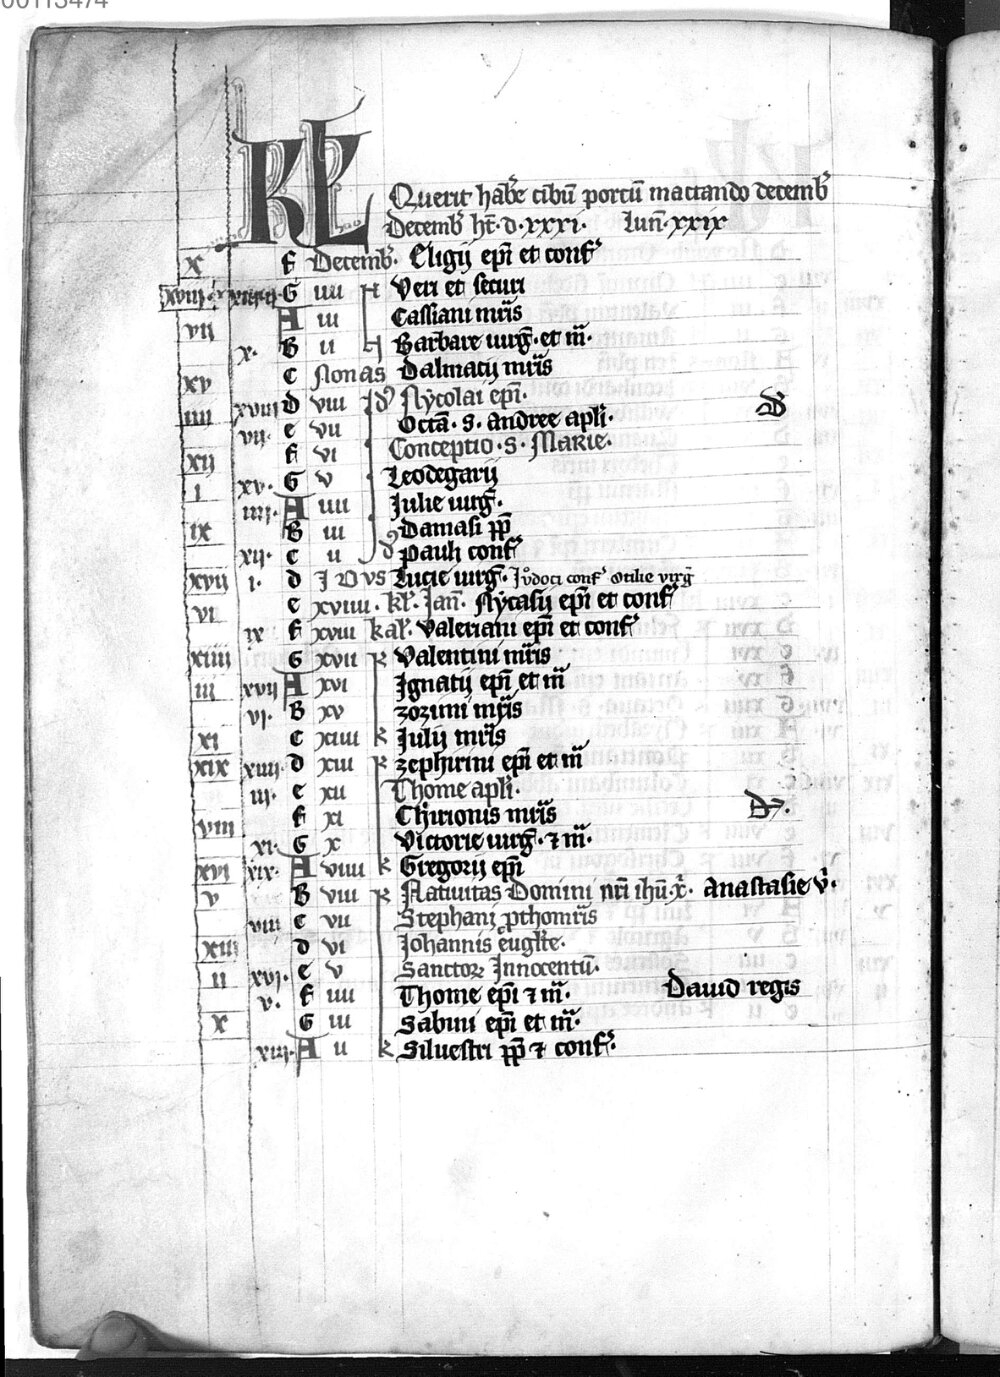 00113474
KL Querit habe cibū porcū mactando decemb
Decemb ht. d. xxxi. Lun. xxix
x F Decemb. Eligij epi et conf
xviii. G iiii N Veri et securi
vii A iii Cassiani mris
x. B ii Barbare uirg. et m.
xv C Nonas Dalmatij mris
iiii xviii D viii Id Nycolai epi.
vii. e vii Octa. s. andree apli.
xii F vi Conceptio. s. Marie.
i xv. G v Leodegarij
iiii. A iiii Iulie uirg.
ix B iii Damasi pp
xii. C ii d Pauli conf
xvii i. d IDVS Lucie uirg. Iudoci conf Otilie virg
vi e xviiii. kl. Ian. Nycasij epi et conf
ix F xviii kal. Valeriani epi et conf
xiiii G xvii k Valentini mris
iii xvii A xvi Ignatij epi et m
vi. B xv zozimi mris
xi C xiiii k Iulij mris
xix xiiii. d xiii k zephirini epi et m
iii. e xii Thome apli.
viii F xi Chirionis mris
xi. G x Victorie uirg. et m.
xvi xix. A viiii k Gregorij epi
v B viii k Natiuitas Domini nri ihu x. Anastasie v.
viii C vii Stephani pthomris
xiii d vi Iohannis euglte.
ii xvi. e v Sanctor Innocentū.
v. F iiii Thome epi et m. Dauid regis
x G iii Sabini epi et m.
xiii. A ii k Siluestri pp et conf.